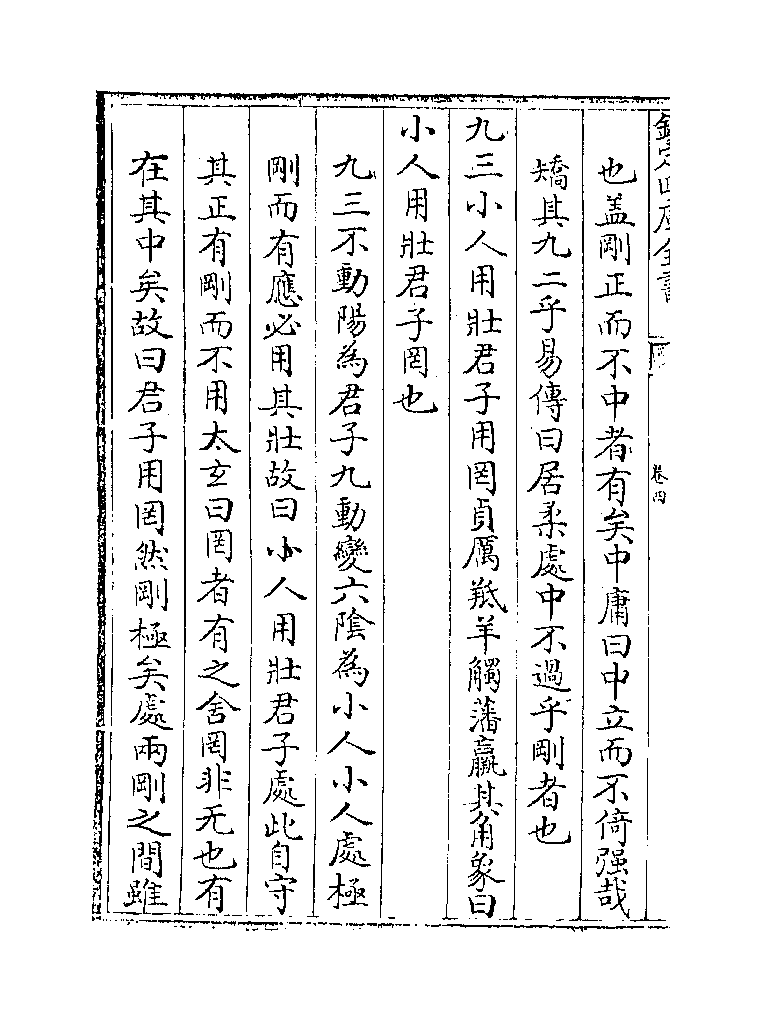 欽定四庫全書
卷四
也盖剛正而不中者有矣中庸曰中立而不倚强哉
矯其九二乎易傳曰居柔處中不過乎剛者也
九三小人用壯君子用罔貞厲羝羊觸藩羸其角象曰
小人用壯君子罔也
九三不動陽為君子九動變六陰為小人小人處極
剛而有應必用其壯故曰小人用壯君子處此自守
其正有剛而不用太玄曰罔者有之舍罔非无也有
在其中矣故曰君子用罔然剛極矣處兩剛之間雖